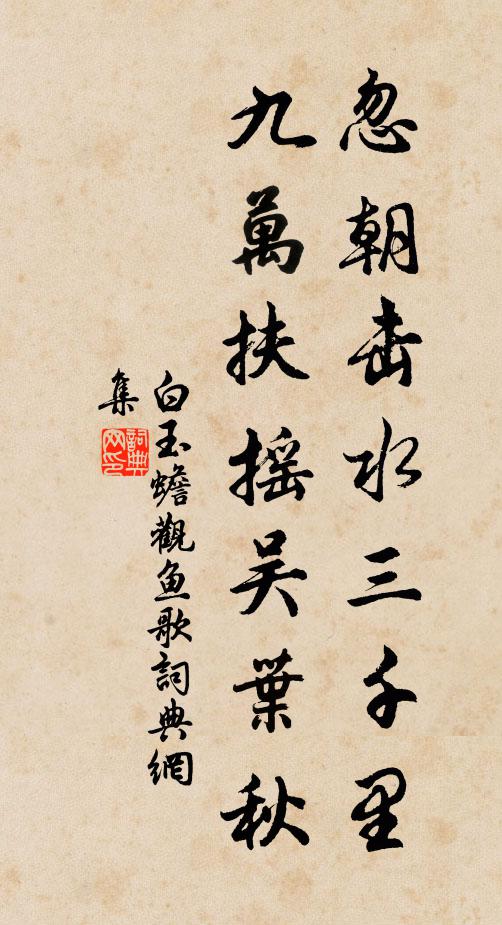 忽朝击水三千里
九萬扶摇吴葉秋
白玉蟾觀鱼歌詞典網
集
詞典
网印